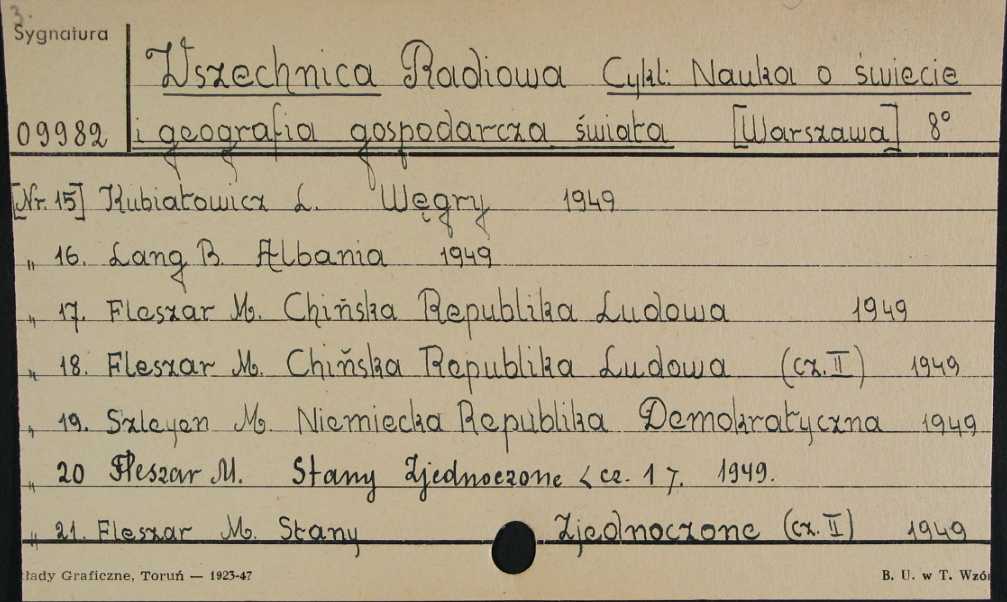 3.
Sygnatura
Wszechnica Radiowa Cykl: Nauka o świecie
09982 i geografia gospodarcza świata [Warszawa] 8°
[Nr. 15] Kubiatowicz L. Węgry 1949
„ 16. Lang B. Albania 1949
„ 17. Fleszar M. Chińska Republika Ludowa 1949
„ 18. Fleszar M. Chińska Republika Ludowa (cz. II) 1949
„ 19. Szleyen M. Niemiecka Republika Demokratyczna 1949
„ 20 Fleszar M. Stany Zjednoczone < cz. 1 7. 1949.
„ 21. Fleszar M. Stany Zjednoczone (cz. II) 1949
łady Graficzne, Toruń — 1923-47 B. U. w T. Wzór